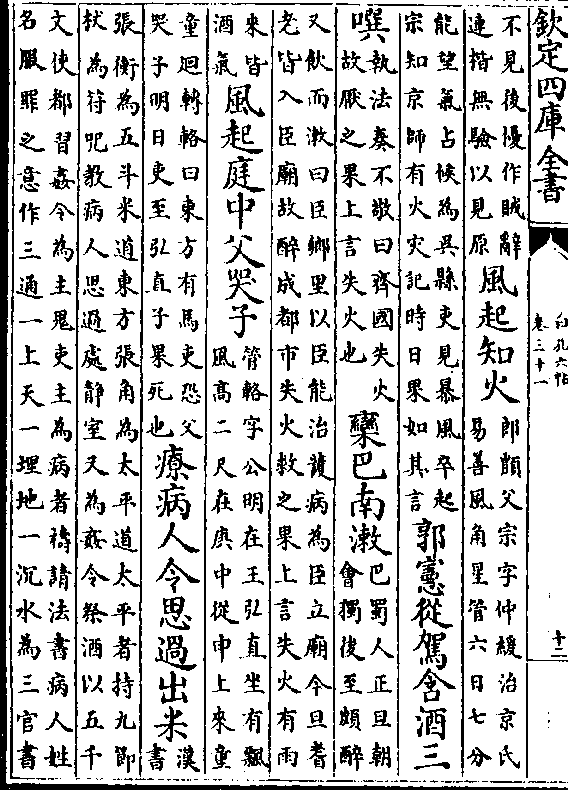 欽定四庫全書
白孔六帖
卷三十一
十二
不見後擾作賊辭
連楷無驗以見原
風起知火
郎顗父宗字仲綏治京氏
易善風角星管六日七分
能望氣占候為吳縣吏見暴風卒起
宗知京師有火災記時日果如其言
郭憲從駕含酒三
噀
執法奏不敬曰齊國失火
故厭之果上言失火也
欒巴南漱
巴蜀人正旦朝
會獨後至頗醉
又飲而漱曰臣鄉里以臣能治護病為臣立廟今旦耆
老皆入臣廟故醉成都市失火救之果上言失火有雨
來皆
酒氣
風起庭中父哭子
管輅字公明在王弘直坐有飄
風高二尺在庚中從申上來童
童迴轉輅曰東方有馬吏恐父
哭子明日吏至弘直子果死也
療病人令思過出米
漢
書
張衡為五斗米道東方張角為太平道太平者持九節
杖為符呪教病人思過處靜室又為姦令祭酒以五千
文使都習姦令為主鬼吏主為病者禱請法書病人姓
名服罪之意作三通一上天一埋地一沉水為三官書